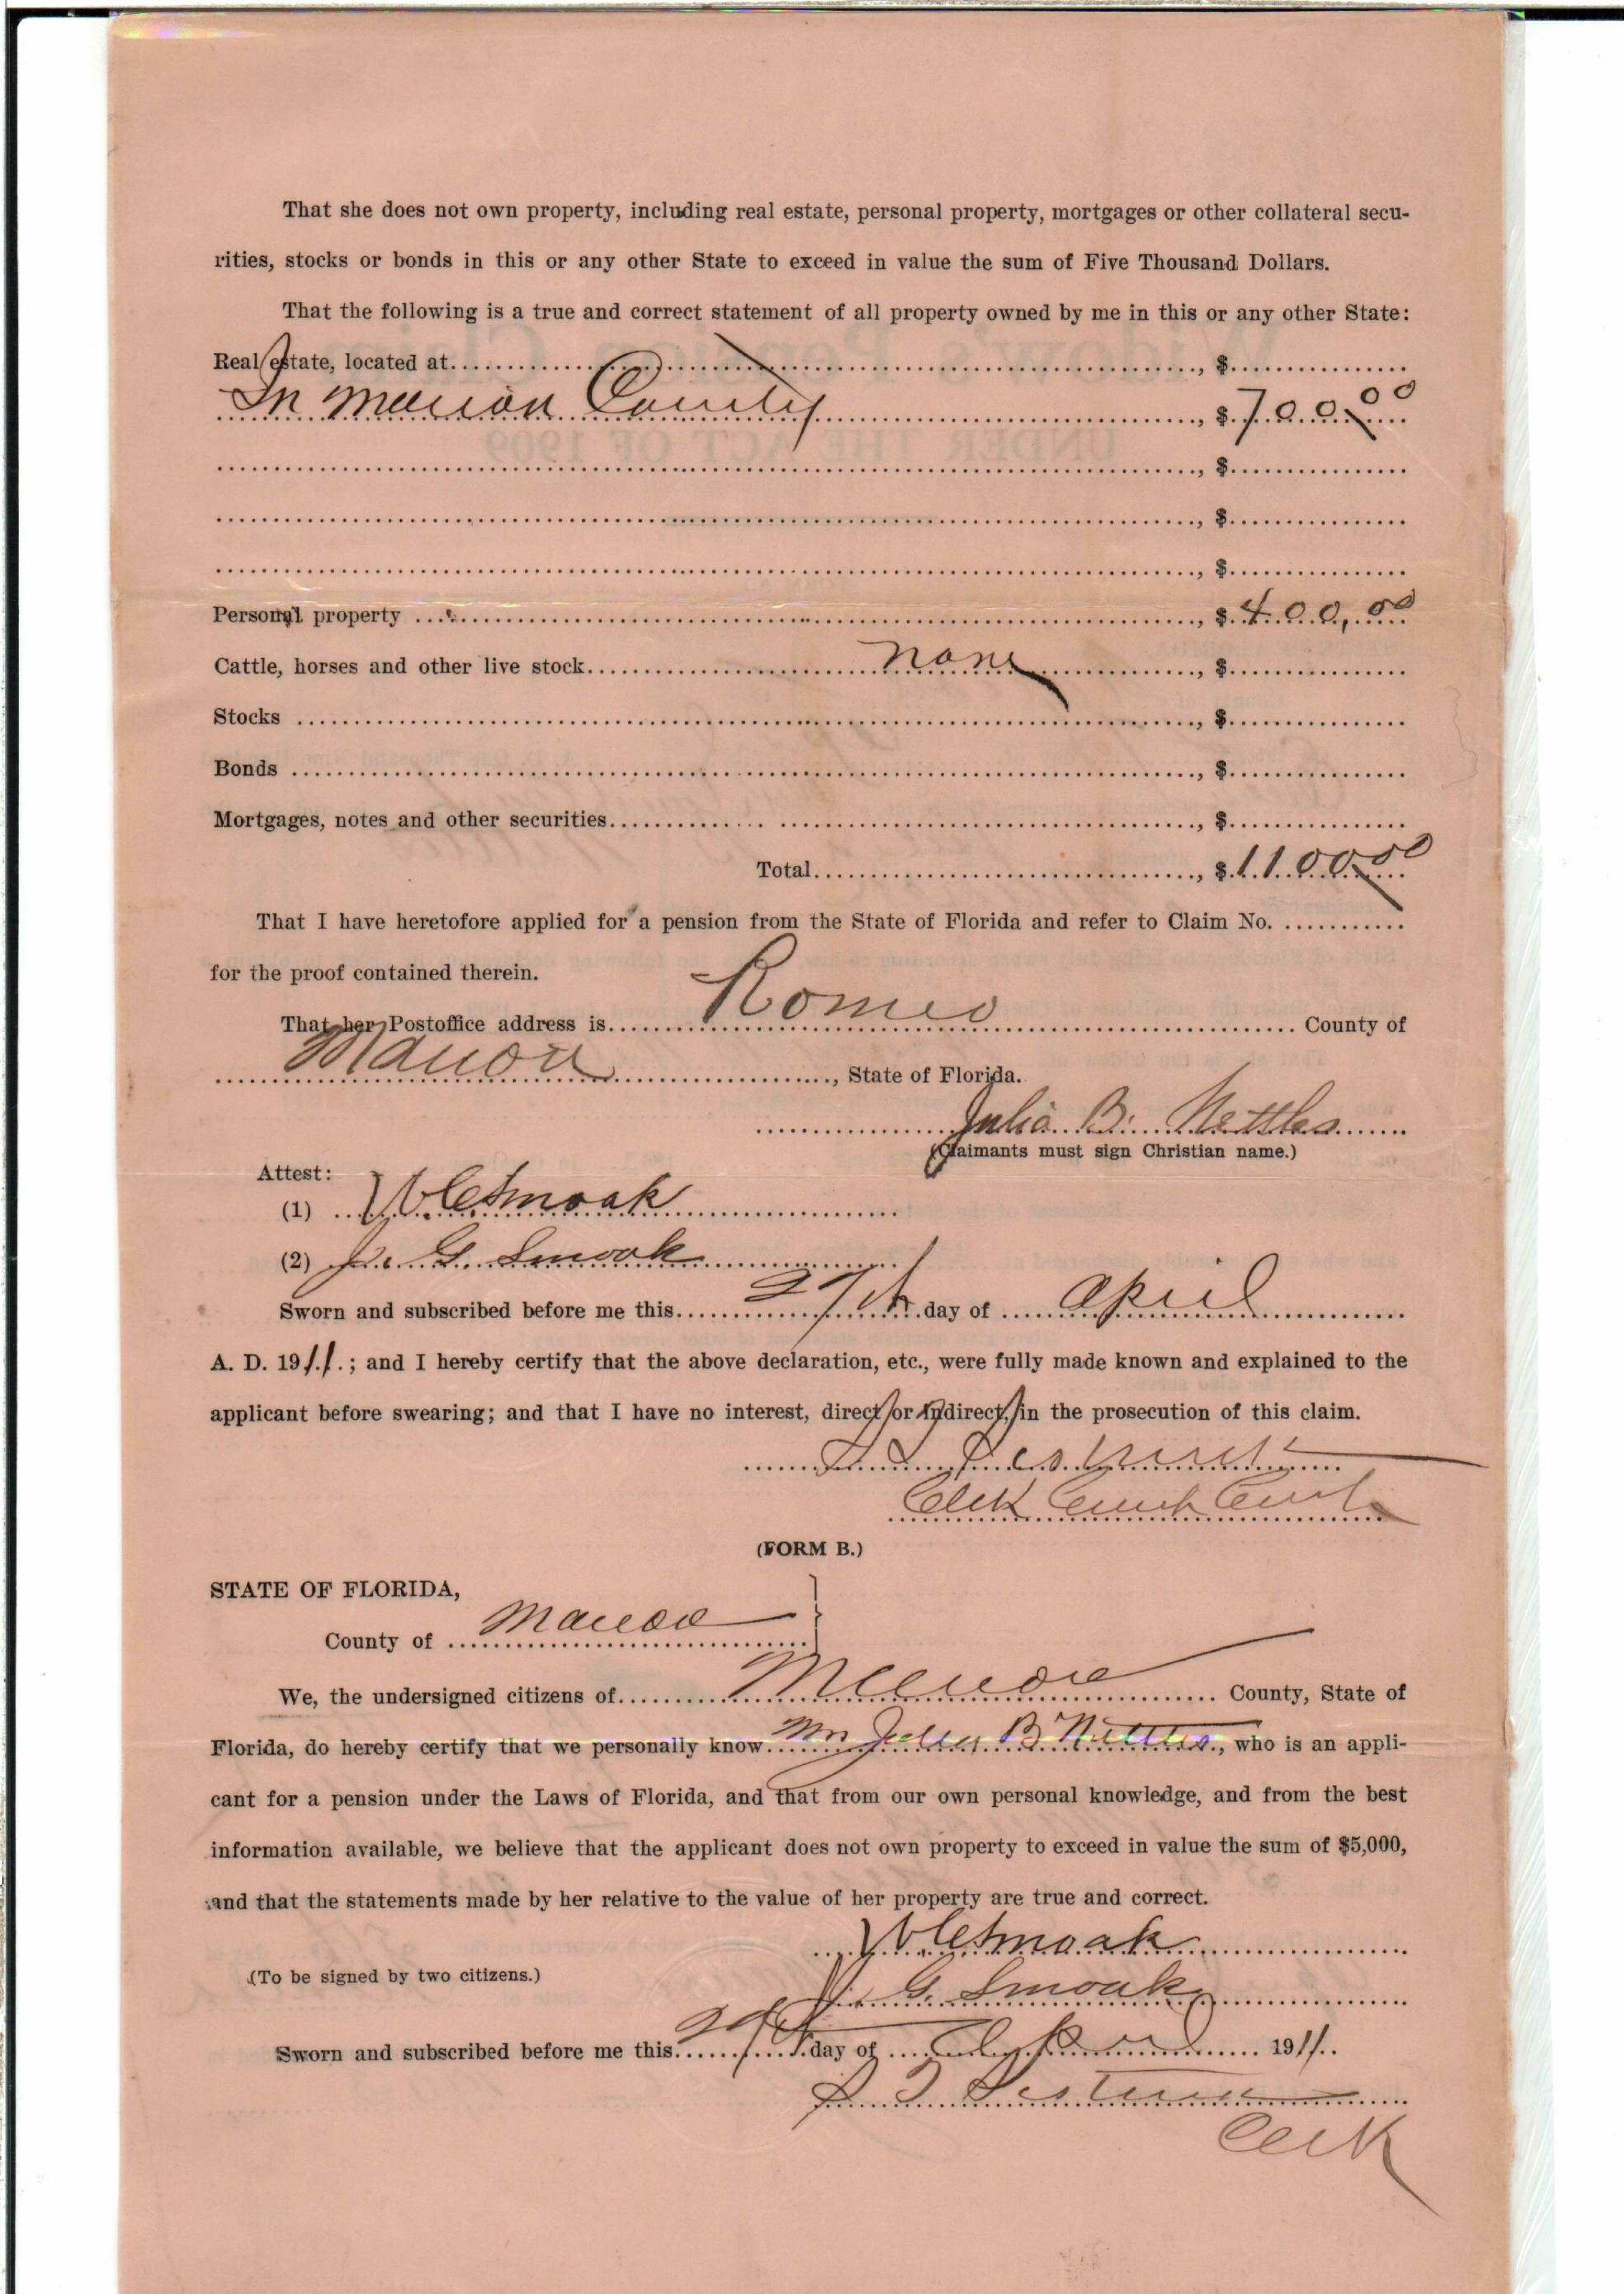 That she does not own property, including real estate, personal property, mortgages or other collateral secu-
rities, stocks or bonds in this or any other State to exceed in value the sum of Five Thousand Dollars.
That the following is a true and correct statement of all property owned by me in this or any other State:
Real estate, located at........, $........
In Marion County, $700.00
, $
, $
, $
Personal property ........, $400,00
Cattle, horses and other live stock........none........, $........
Stocks ........, $........
Bonds ........, $........
Mortgages, notes and other securities........, $........
Total........, $1100.00
That I have heretofore applied for a pension from the State of Florida and refer to Claim No. ........
for the proof contained therein.
That her Postoffice address is........Romeo........ County of
Marion........, State of Florida.
Julia B. Nettles
(Claimants must sign Christian name.)
Attest:
(1) W C Smoak
(2) J. G. Smoak
Sworn and subscribed before me this 27th day of April
A. D. 1911; and I hereby certify that the above declaration, etc., were fully made known and explained to the
applicant before swearing; and that I have no interest, direct or indirect, in the prosecution of this claim.
Clerk Circuit Court
(FORM B.)
STATE OF FLORIDA,
County of Marion
We, the undersigned citizens of Marion County, State of
Florida, do hereby certify that we personally know Mrs Julia B Nettles, who is an appli-
cant for a pension under the Laws of Florida, and that from our own personal knowledge, and from the best
information available, we believe that the applicant does not own property to exceed in value the sum of $5,000,
and that the statements made by her relative to the value of her property are true and correct.
W C Smoak
(To be signed by two citizens.)
J. G. Smoak
Sworn and subscribed before me this 27th day of April 1911.
Clerk